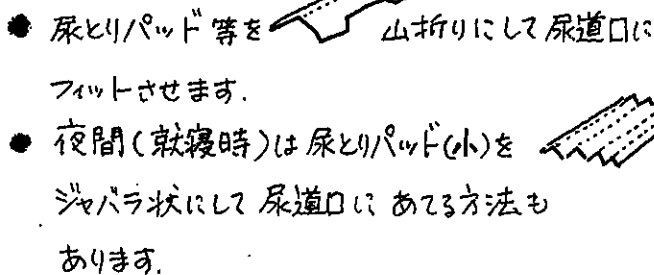 ● 尿とりパッド等を 山折りにして尿道口に
フィットさせます.
● 夜間(就寝時)は尿とりパッド(小)を
ジャバラ状にして尿道口に あてる方法も
あります.